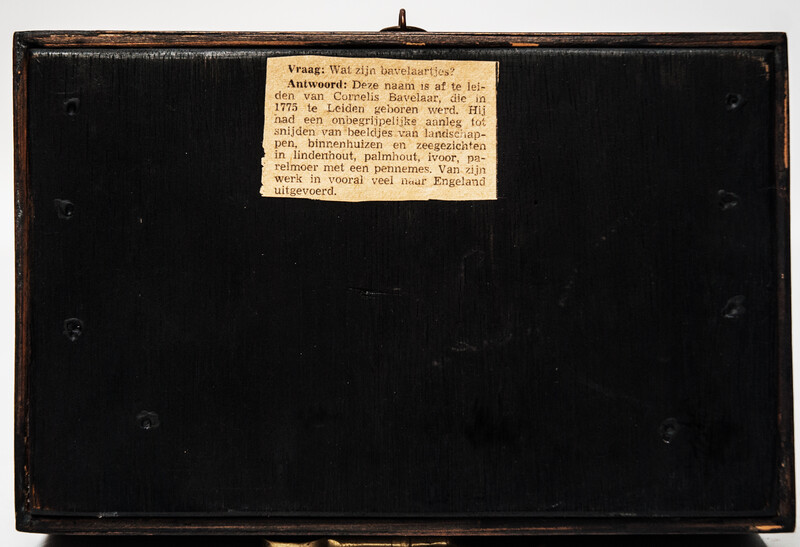 Vraag: Wat zijn bavelaartjes?
Antwoord: Deze naam is af te lei-
den van Cornelis Bavelaar, die in
1775 te Leiden geboren werd. Hij
had een onbegrijpelijke aanleg tot
snijden van beeldjes van landschap-
pen, binnenhuizen en zeegezichten
in lindenhout, palmhout, ivoor, pa-
relmoer met een pennemes. Van zijn
werk in vooral veel naar Engeland
uitgevoerd.